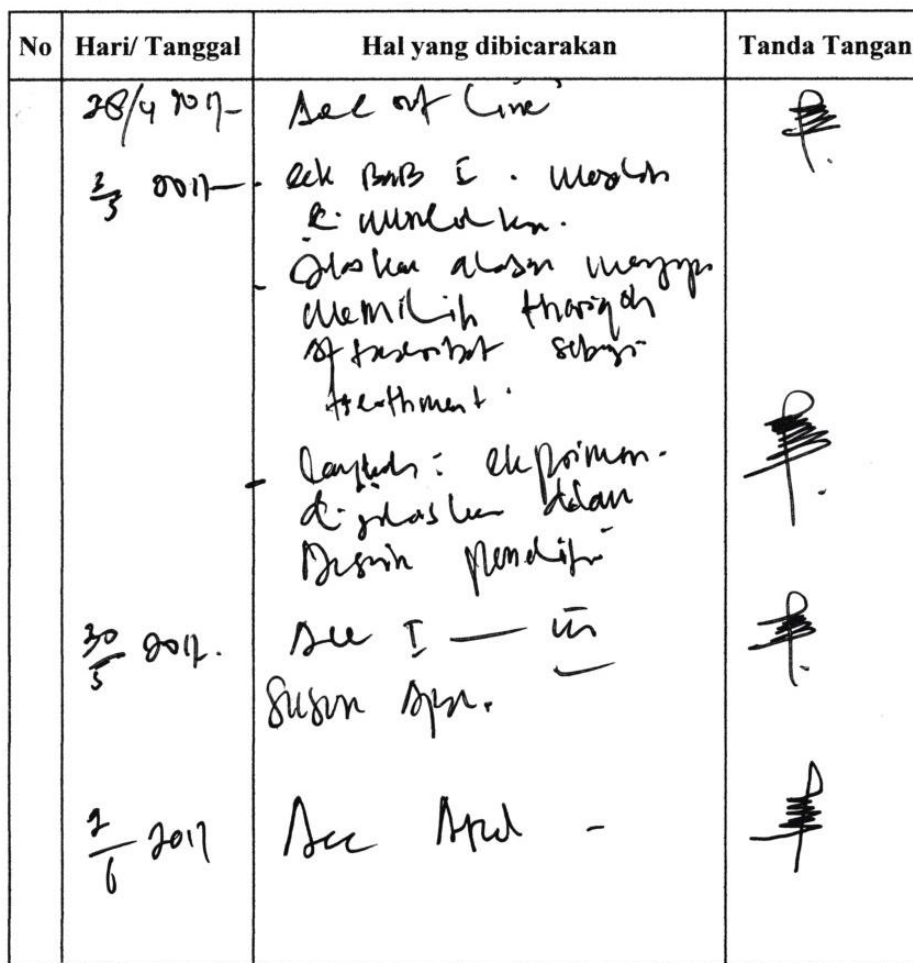 No Hari/ Tanggal Hal yang dibicarakan Tanda Tangan
28/4 2017 Acc out line
2/5 2017 - cek BAB I . masalah
di munculkan.
- Jelaskan alasan mengapa
memilih thariqah
sebagai
treathment.
- langkah : eksperimen
dijelaskan dalam
Desain penelitian
30/5 2017. Acc I — III
Susun Apd.
2/6 2017 Acc Apd -